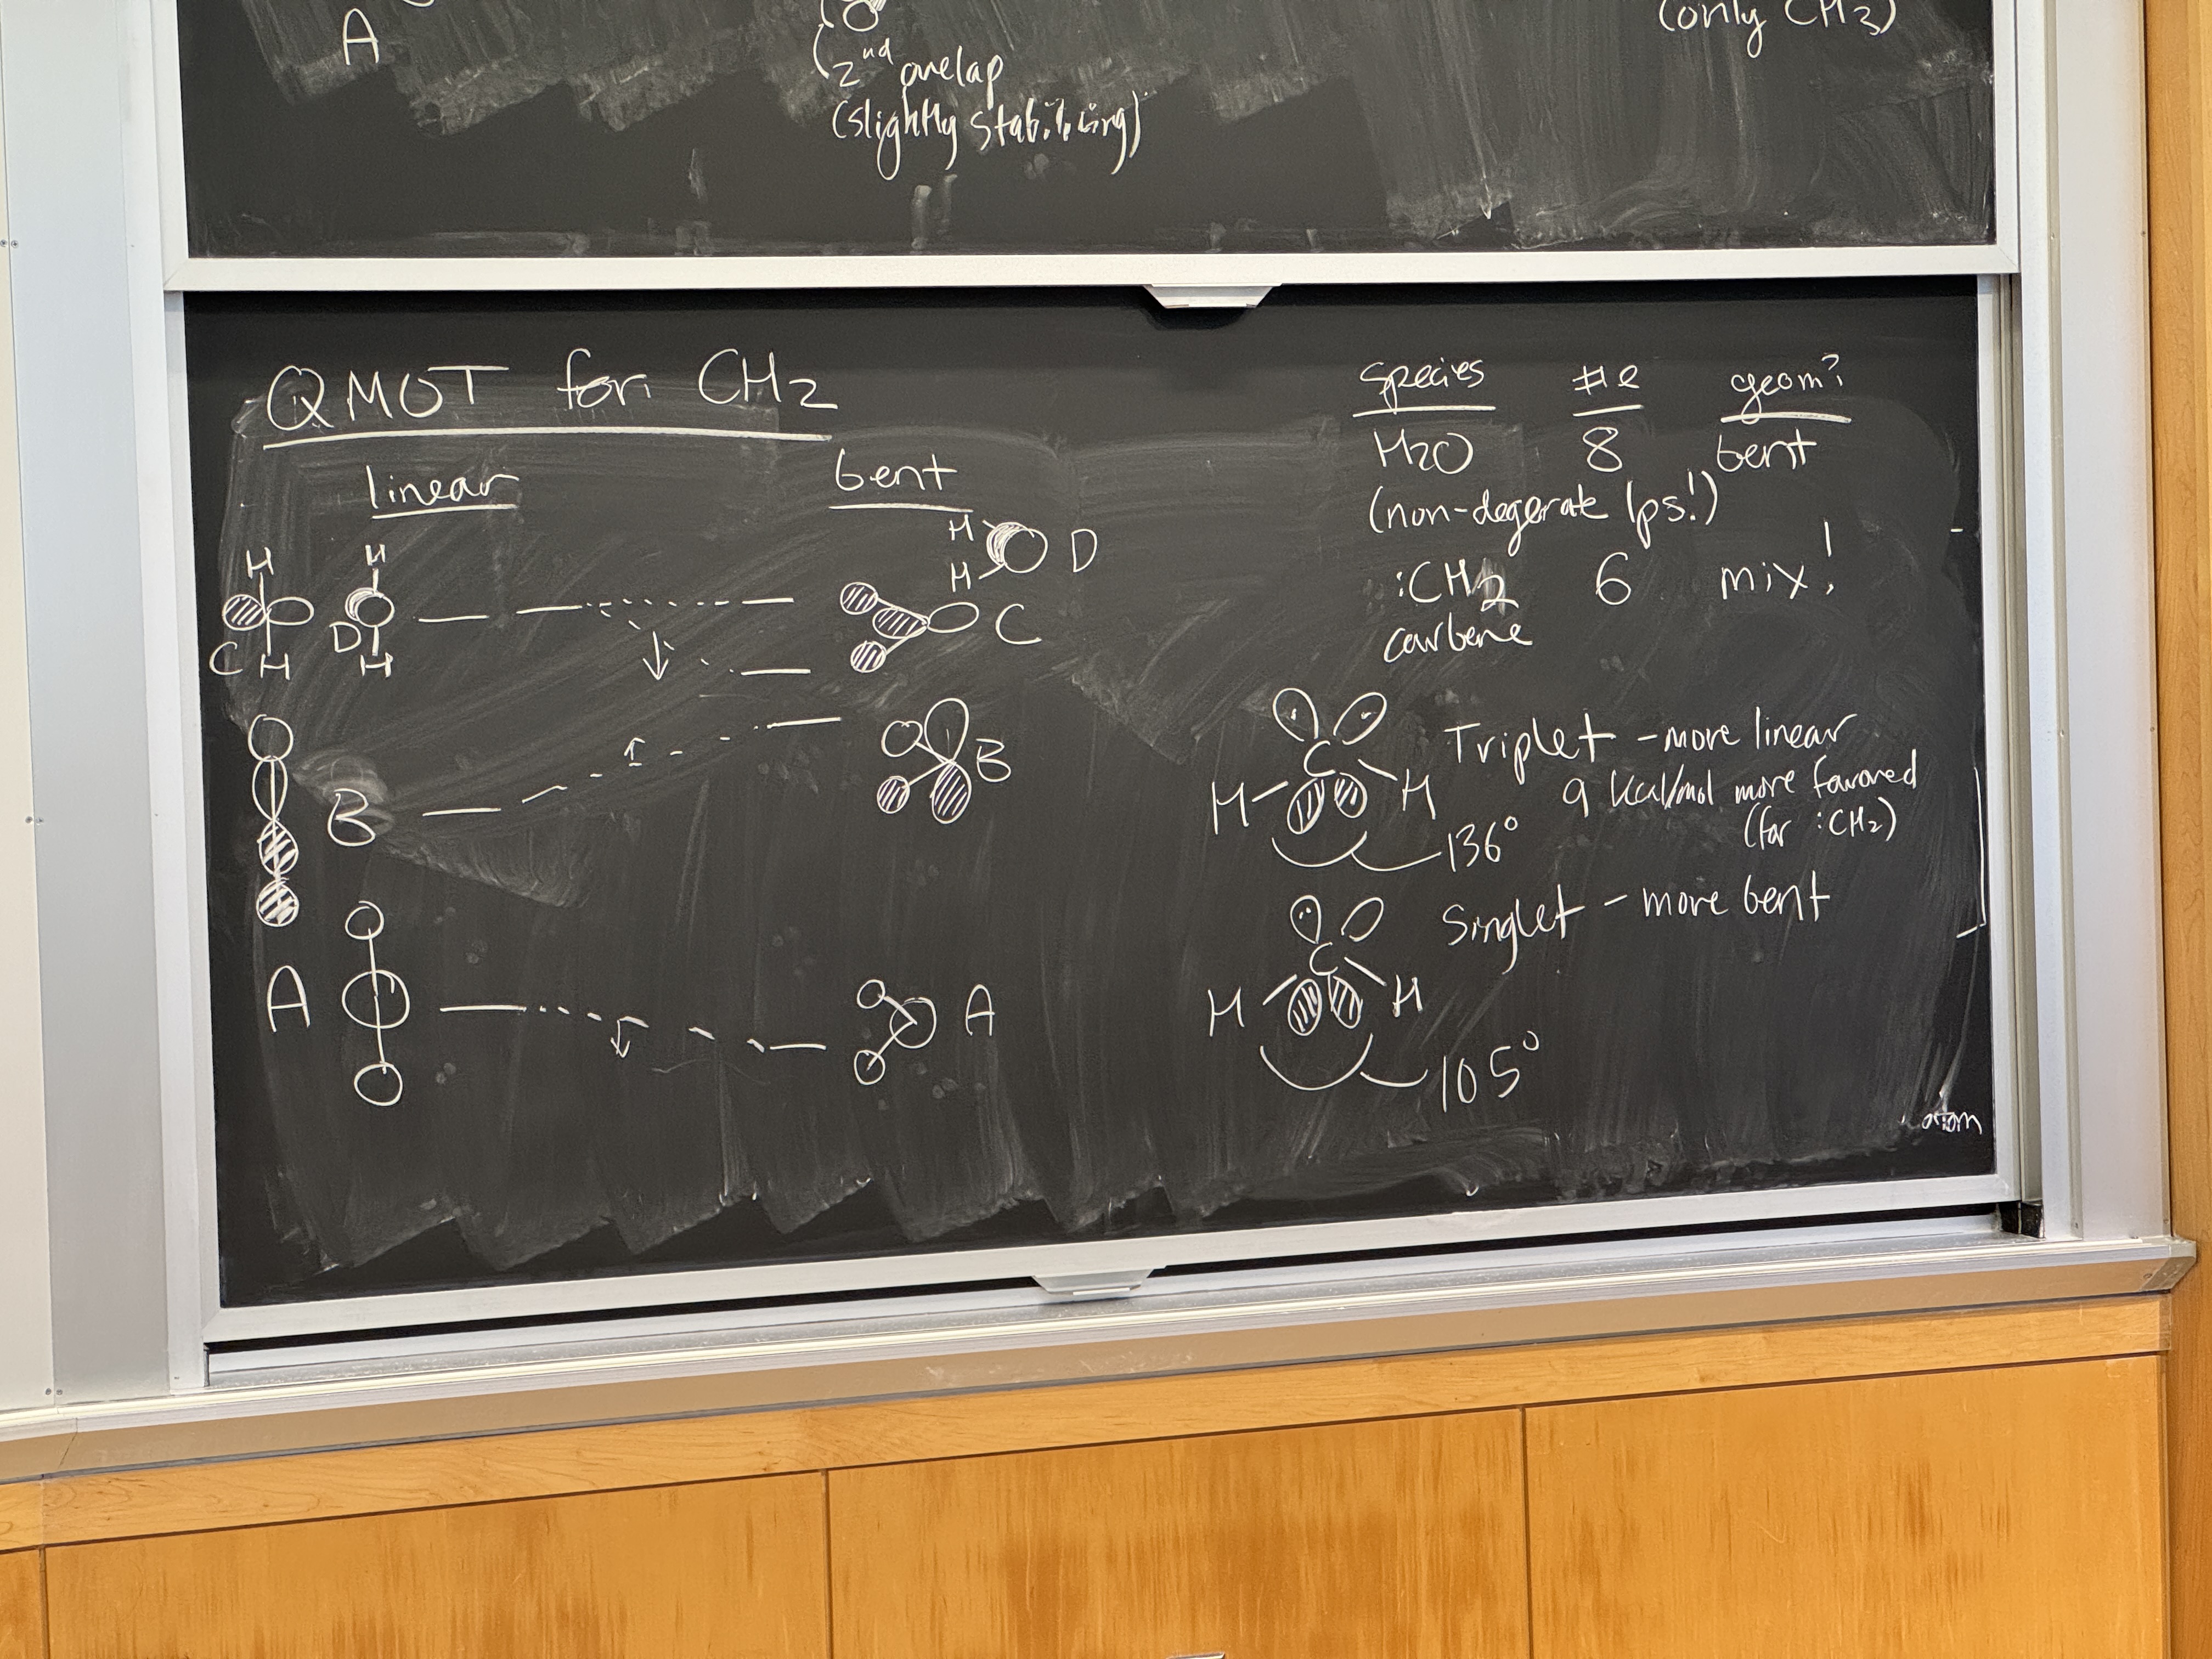 A
2nd ovelap
(slightly stabilizing)
(only CH3)
QMOT for CH2
linear
bent
H
H
C
H
D
H
H
H
D
C
B
B
A
A
species #e geom?
H2O 8 bent
(non-degerate lps!)
:CH2 6 mix!
carbene
C
H
H
Triplet - more linear
9 kcal/mol more favored
(for :CH2)
136°
Singlet - more bent
C
H
H
105°